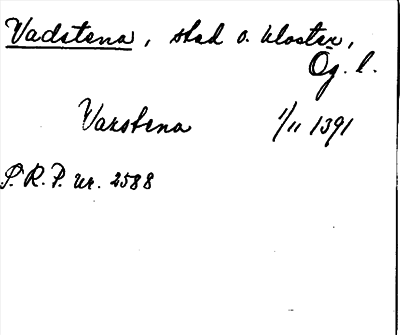 Vadstena, stad o. kloster,
Ög. l.
Varstena 1/11 1391
P. R. P. nr. 2588